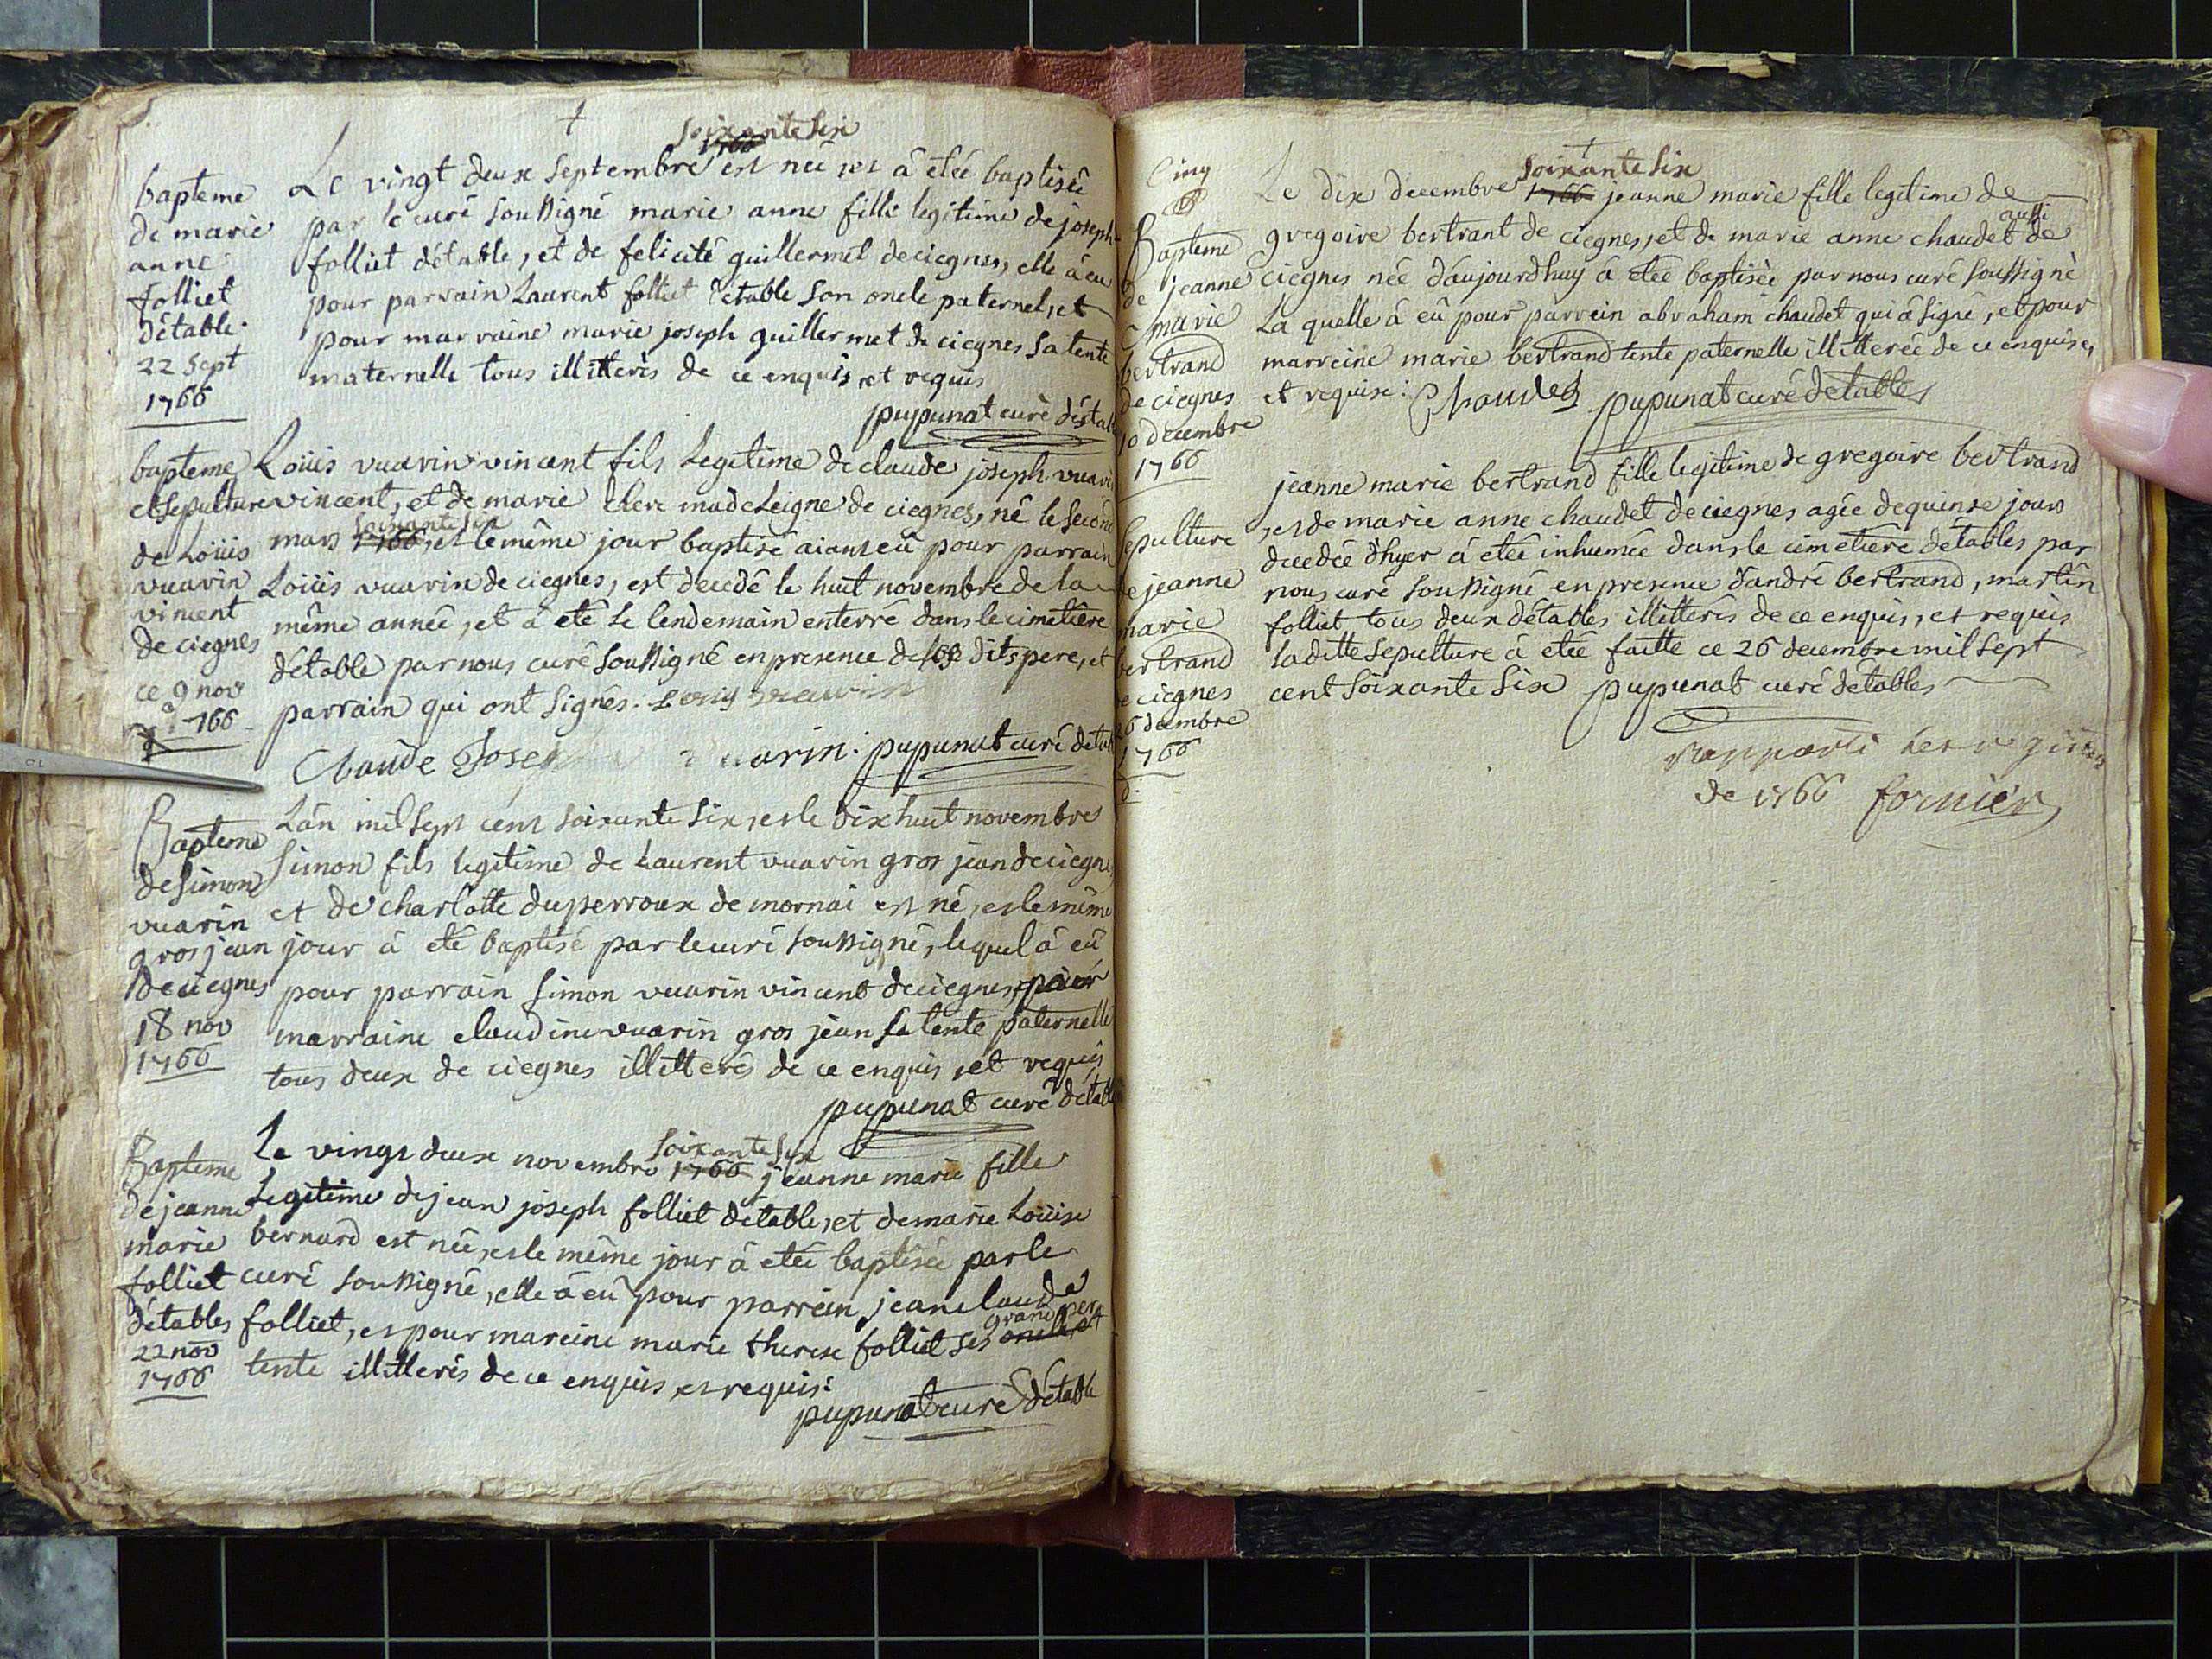 +
soixante six
bapteme
de marie
anne
folliet
détable.
22 sept
1766
Le vingt deux septembre 1766 est neé, et à etéé baptiseé
par le curé soussigné marie anne fille legitime de joseph
folliet détable, et de felicité guillermet de ciegnes, elle à eu
pour parrain Laurent folliet détable son oncle paternel, et
pour marraine marie joseph guillermet de ciegnes sa tente
maternelle tous illitterés de ce enquis, et requis
pupunat curé détab
bapteme
et sepulture
de Loüis
vuarin
vincent
de ciegnes
ce 9 nov
1766
Loüis vuarin vincent fils Legitime de claude joseph vuarin
vincent, et de marie clerc madeleigne de ciegnes, né le second
soixante six
mars 1766, et le même jour baptisé aiant eû pour parrain
Loüis vuarin de ciegnes, est decedé le huit novembre de la
même année, et à eté le lendemain enterré dans le cimetière
détable par nous curé soussigné en presence des dits pere, et
parrain qui ont signés. Louis vuarin
Claude Joseph vuarin. pupunat curé détab
Bapteme
de simon
vuarin
gros jean
de ciegnes
18 nov
1766
Lan mil sept cent soixante six, et le dix huit novembre
simon fils legitime de Laurent vuarin gros jean de ciegnes
et de charlotte duperroux de mornai est né, et le même
jour à eté baptisé par le curé soussigné, lequel à eû
pour parrain simon vuarin vincent de ciegnes, pour
marraine claudine vuarin gros jean sa tente paternelle
tous deux de ciegnes illitterés de ce enquis, et requis
pupunat curé détable
Bapteme
de jeanne
marie
folliet
détables
22 nov
1766
soixante six
Le vingt deux novembre 1766 jeanne marie fille
Legitime de jean joseph folliet détable, et de marie Loüise
bernard est neé, et le même jour à etéé baptiseé par le
curé soussigné, elle à eû pour parrein jean claude
folliet, et pour mareine marie therese folliet ses oncle et
grand pere
tente illitterés de ce enquis, et requis:
pupunat curé détabl
Cinq
Bapteme
de jeanne
marie
bertrand
de ciegnes
10 decembre
1766
+
soixante six
Le dix decembre 1766 jeanne marie fille legitime de
aussi
gregoire bertrant de ciegnes, et de marie anne chaudet de
ciegnes née d'aujourdhuy à etéé baptiseé par nous curé soussigné
La quelle à eû pour parrein abraham chaudet qui à signé, et pour
marreine marie bertrand tente paternelle illittereé de ce enquise,
et requise: Chaudet pupunat curé detables
sepulture
de jeanne
marie
bertrand
de ciegnes
26 decembre
1766
jeanne marie bertrand fille legitime de gregoire bertrand
, et de marie anne chaudet de ciegnes ageé de quinse jours
decedeé d'hyer à etéé inhumeé dans le cimetière détables par
nous curé soussigné en presence d'andré bertrand, martin
folliet tous deux détables illitterés de ce enquis, et requis
laditte sepulture à etéé faitte ce 26 decembre mil sept
cent soixante six pupunat curé détables
rapporté
de 1766 fornier